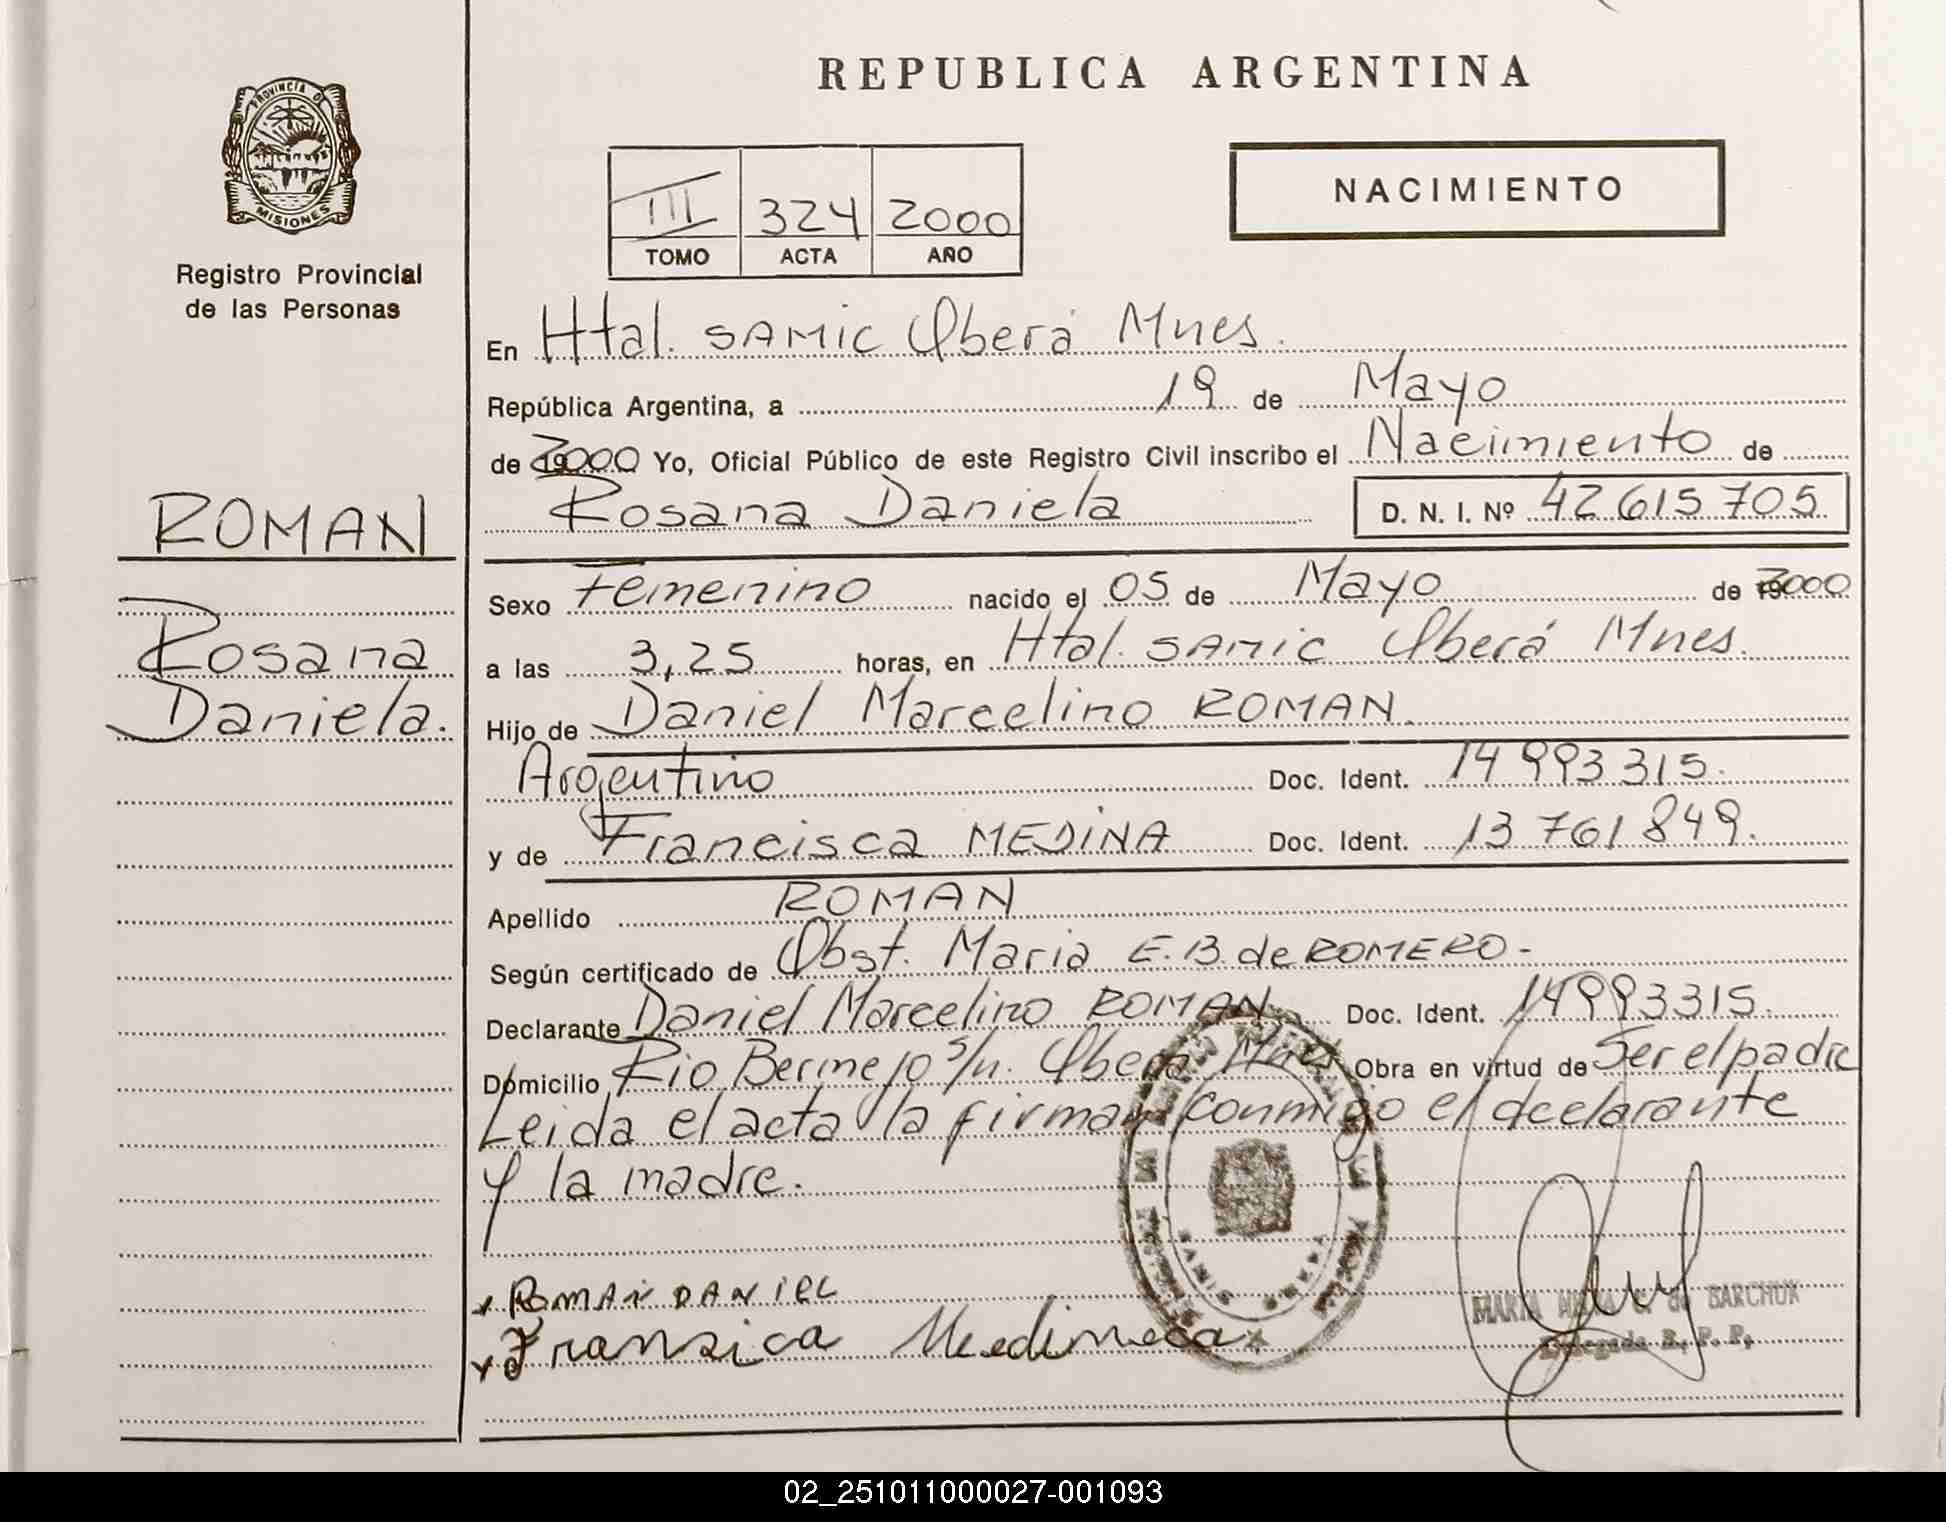 REPUBLICA ARGENTINA
PROVINCIA D
MISIONES
Registro Provincial
de las Personas
III 324 2000
TOMO ACTA AÑO
NACIMIENTO
En Htal. SAMIC Oberá Mnes.
República Argentina, a 19 de Mayo
de 2000 Yo, Oficial Público de este Registro Civil inscribo el Nacimiento de
Rosana Daniela D. N. I. Nº 42 615 705
ROMAN
Rosana
Daniela.
Sexo Femenino nacido el 05 de Mayo de 2000
a las 3,25 horas, en Htal. SAMIC Oberá Mnes.
Hijo de Daniel Marcelino ROMAN
Argentino Doc. Ident. 14 993 315.
y de Francisca MEDINA Doc. Ident. 13 761 849.
Apellido ROMAN
Según certificado de Obst. Maria E. B. de ROMERO-
Declarante Daniel Marcelino ROMAN Doc. Ident. 14993315.
Domicilio Rio Bermejo s/n. Obera Mnes Obra en virtud de Ser el padre
Leida el acta la firman conmigo el declarante
y la madre.
ROMAN DANIEL
Fransica
MARIA de BARCHUK
Delegada R. P. P.
02_251011000027-001093